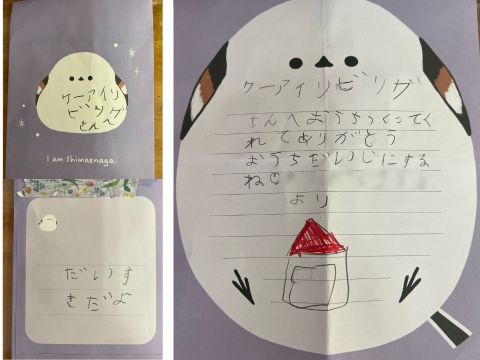 ケーアイリ
ビング
さんへ
I am Shimaenaga.
だいす
きだよ
ケーアイリビリグ
さんへおうちつくってく
れてありがとう
おうちだいじにする
ね
より